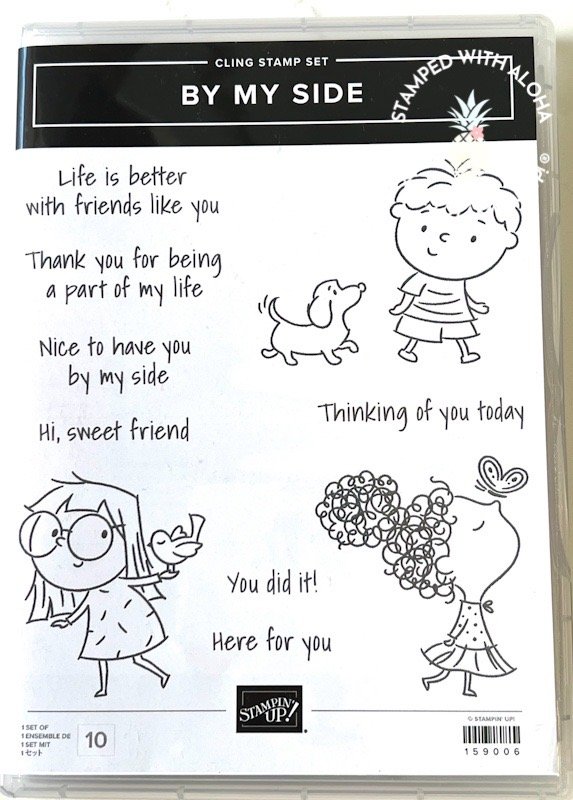 CLING STAMP SET
BY MY SIDE
STAMPED WITH ALOHA
Life is better
with friends like you
Thank you for being
a part of my life
Nice to have you
by my side
Hi, sweet friend
Thinking of you today
You did it!
Here for you
STAMPIN' UP!®
1 SET OF
1 ENSEMBLE DE
1 SET MIT
1 セット
10
© STAMPIN' UP!
159006